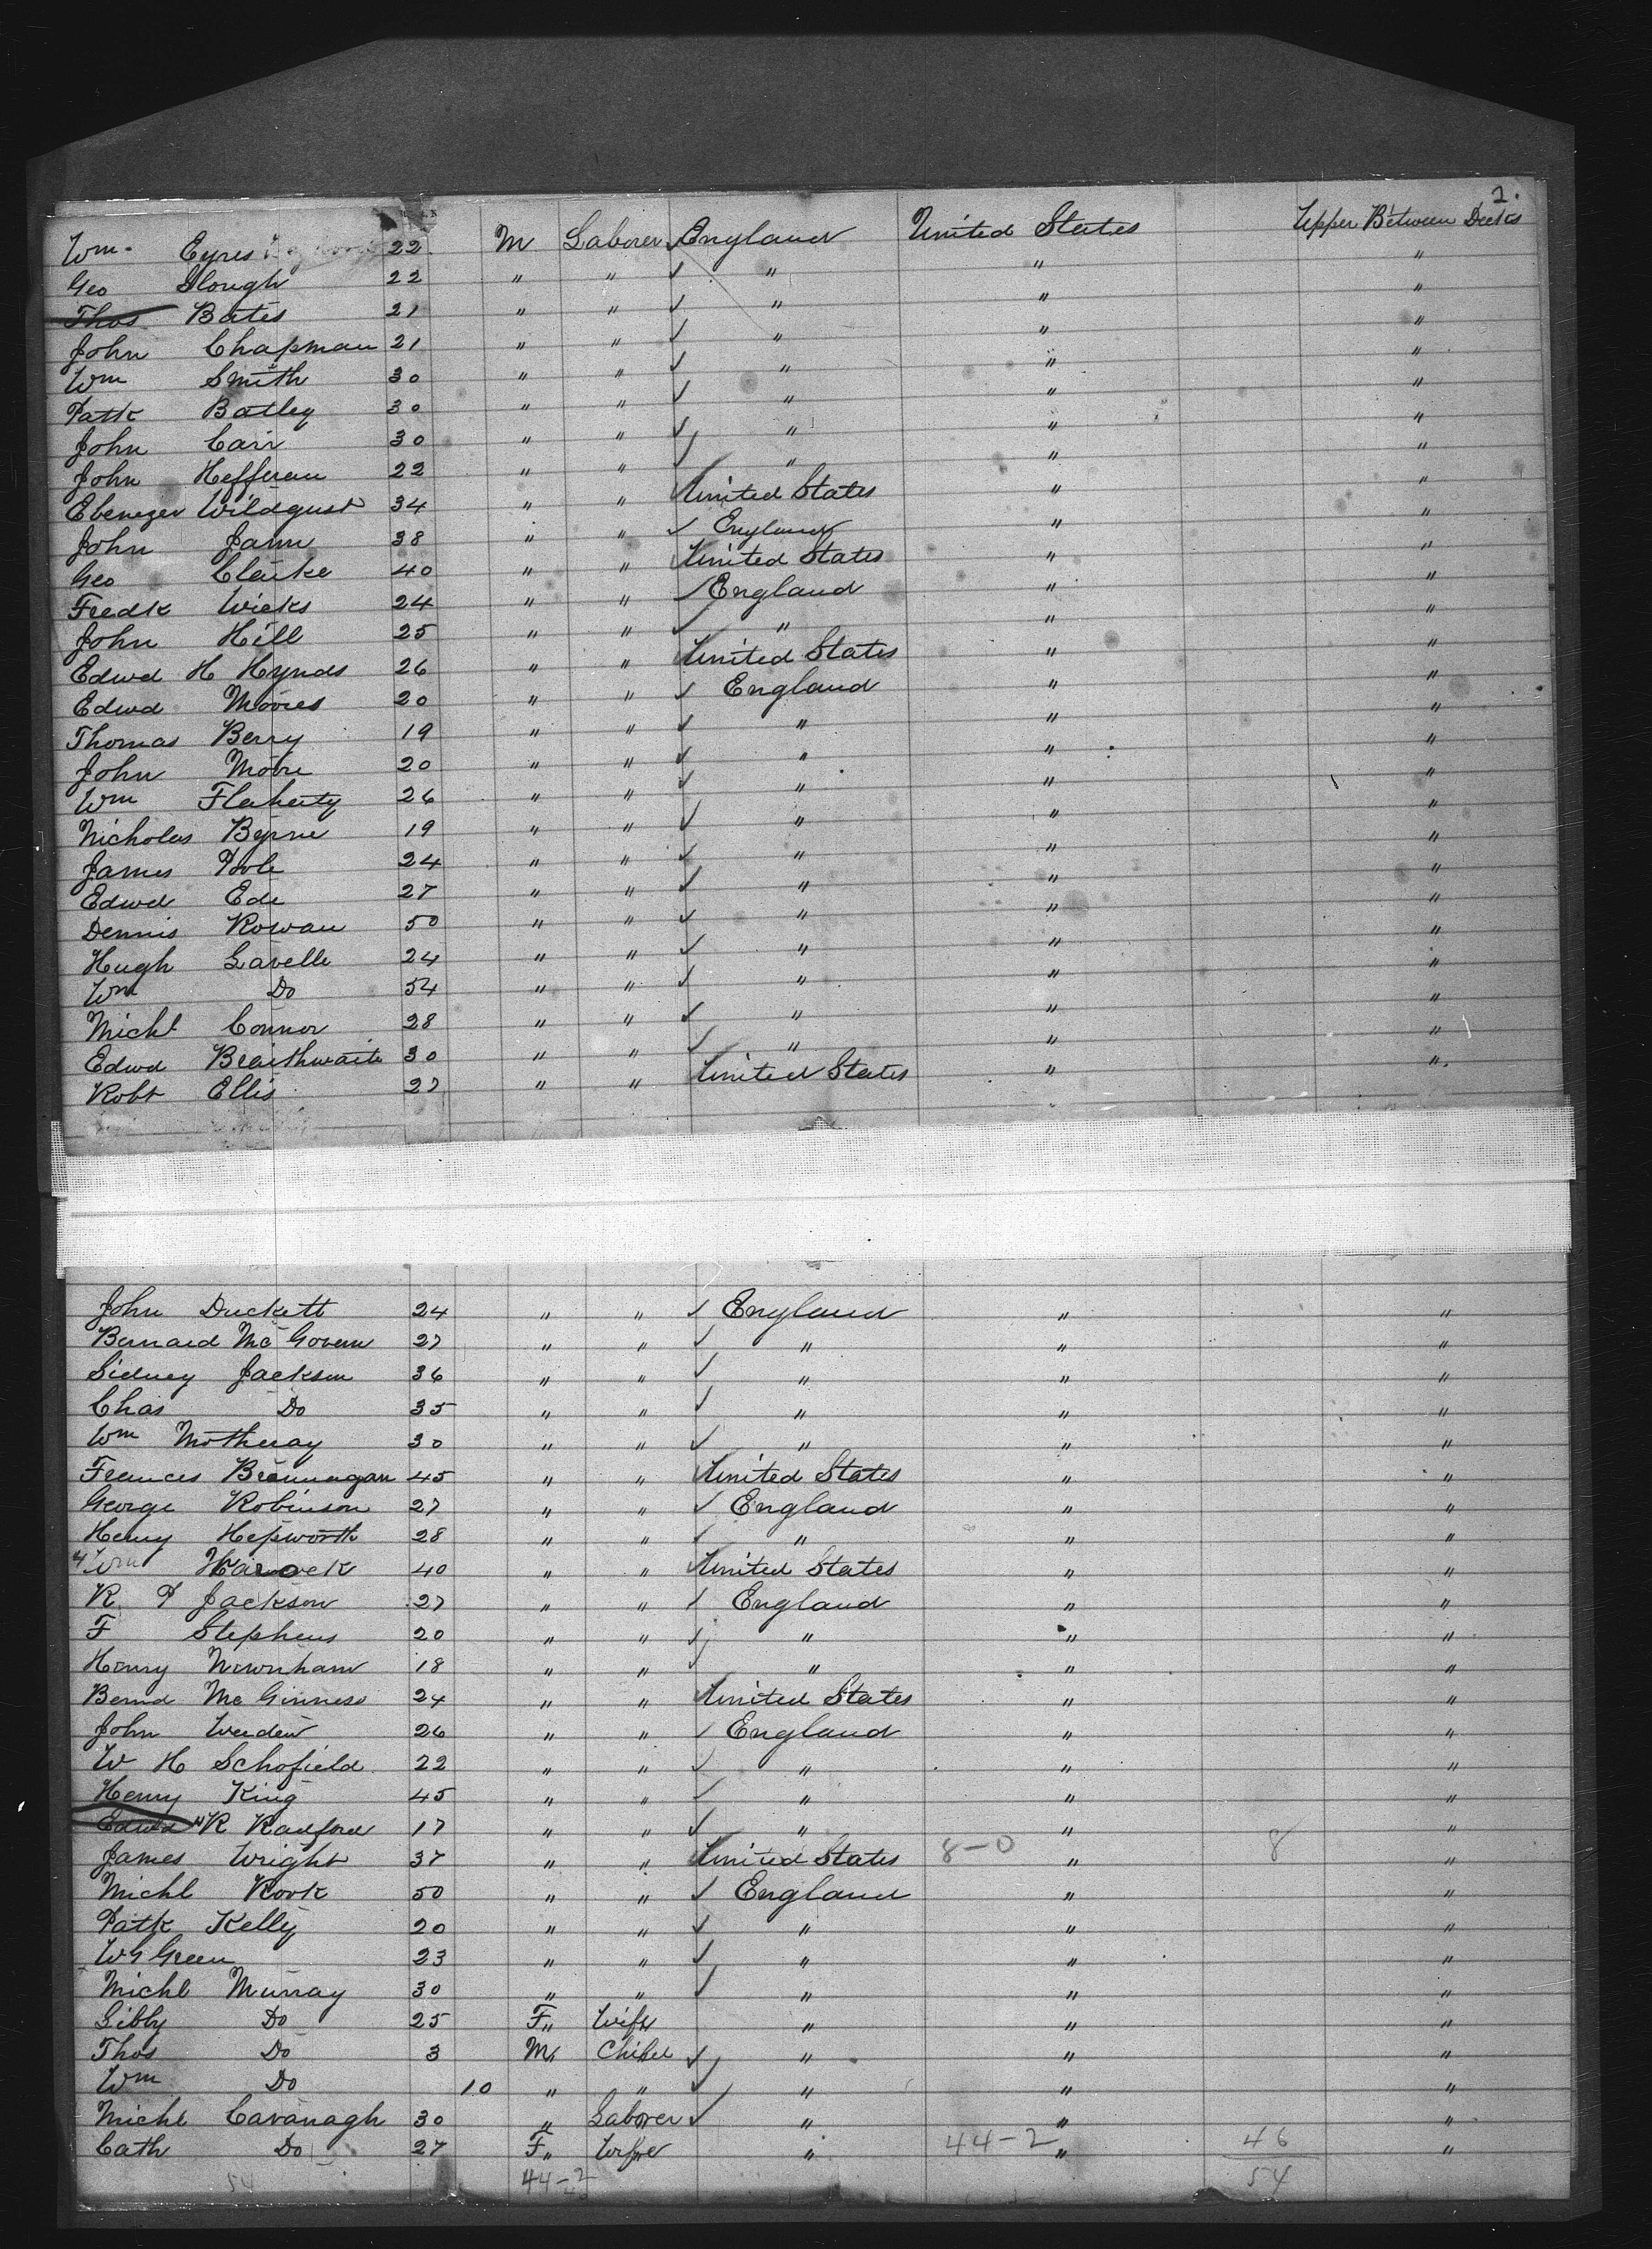 2.
Wm Eyres 22 M Laborer England United States Upper Between Decks
Geo Slough 22 " " " " "
Thos Bates 21 " " " " "
John Chapman 21 " " " " "
Wm Smith 30 " " " " "
Patk Batley 30 " " " " "
John Carr 30 " " " " "
John Heffernan 22 " " " " "
Ebenezer Wildgust 34 " " United States " "
John Jann 38 " " England " "
Geo Clarke 40 " " United States " "
Fredk Wicks 24 " " England " "
John Hill 25 " " " " "
Edwd H Hynds 26 " " United States " "
Edwd Moores 20 " " England " "
Thomas Berry 19 " " " " "
John Moore 20 " " " " "
Wm Flaherty 26 " " " " "
Nicholas Byrne 19 " " " " "
James Poole 24 " " " " "
Edwd Ede 27 " " " " "
Dennis Rowan 50 " " " " "
Hugh Lavelle 24 " " " " "
Wm Do 54 " " " " "
Michl Connor 28 " " " " "
Edwd Braithwaite 30 " " " " "
Robt Ellis 27 " " United States " "
John Duckett 24 " " England " "
Bernard McGovern 27 " " " " "
Sidney Jackson 36 " " " " "
Chas Do 35 " " " " "
Wm Motheray 30 " " " " "
Frances Brannagan 45 " " United States " "
George Robinson 27 " " England " "
Henry Hepworth 28 " " " " "
Wm 40 " " United States " "
R P Jackson 27 " " England " "
F Stephens 20 " " " " "
Henry Newnham 18 " " " " "
Bernd McGinness 24 " " United States " "
John Weeden 26 " " England " "
W H Schofield 22 " " " " "
Henry King 45 " " " " "
Edwd R Radford 17 " " " " "
James Wright 37 " " United States 8-0 " 8 "
Michl Rook 50 " " England " "
Patk Kelly 20 " " " " "
W G Green 23 " " " " "
Michl Murray 30 " " " " "
Libby Do 25 F " Wife " " "
Thos Do 3 M " Child " " "
Wm Do 10 " " " " "
Michl Cavanagh 30 " Laborer " " "
Cath Do 27 F " Wife " 44-2 " 46 "
54 44-2 54